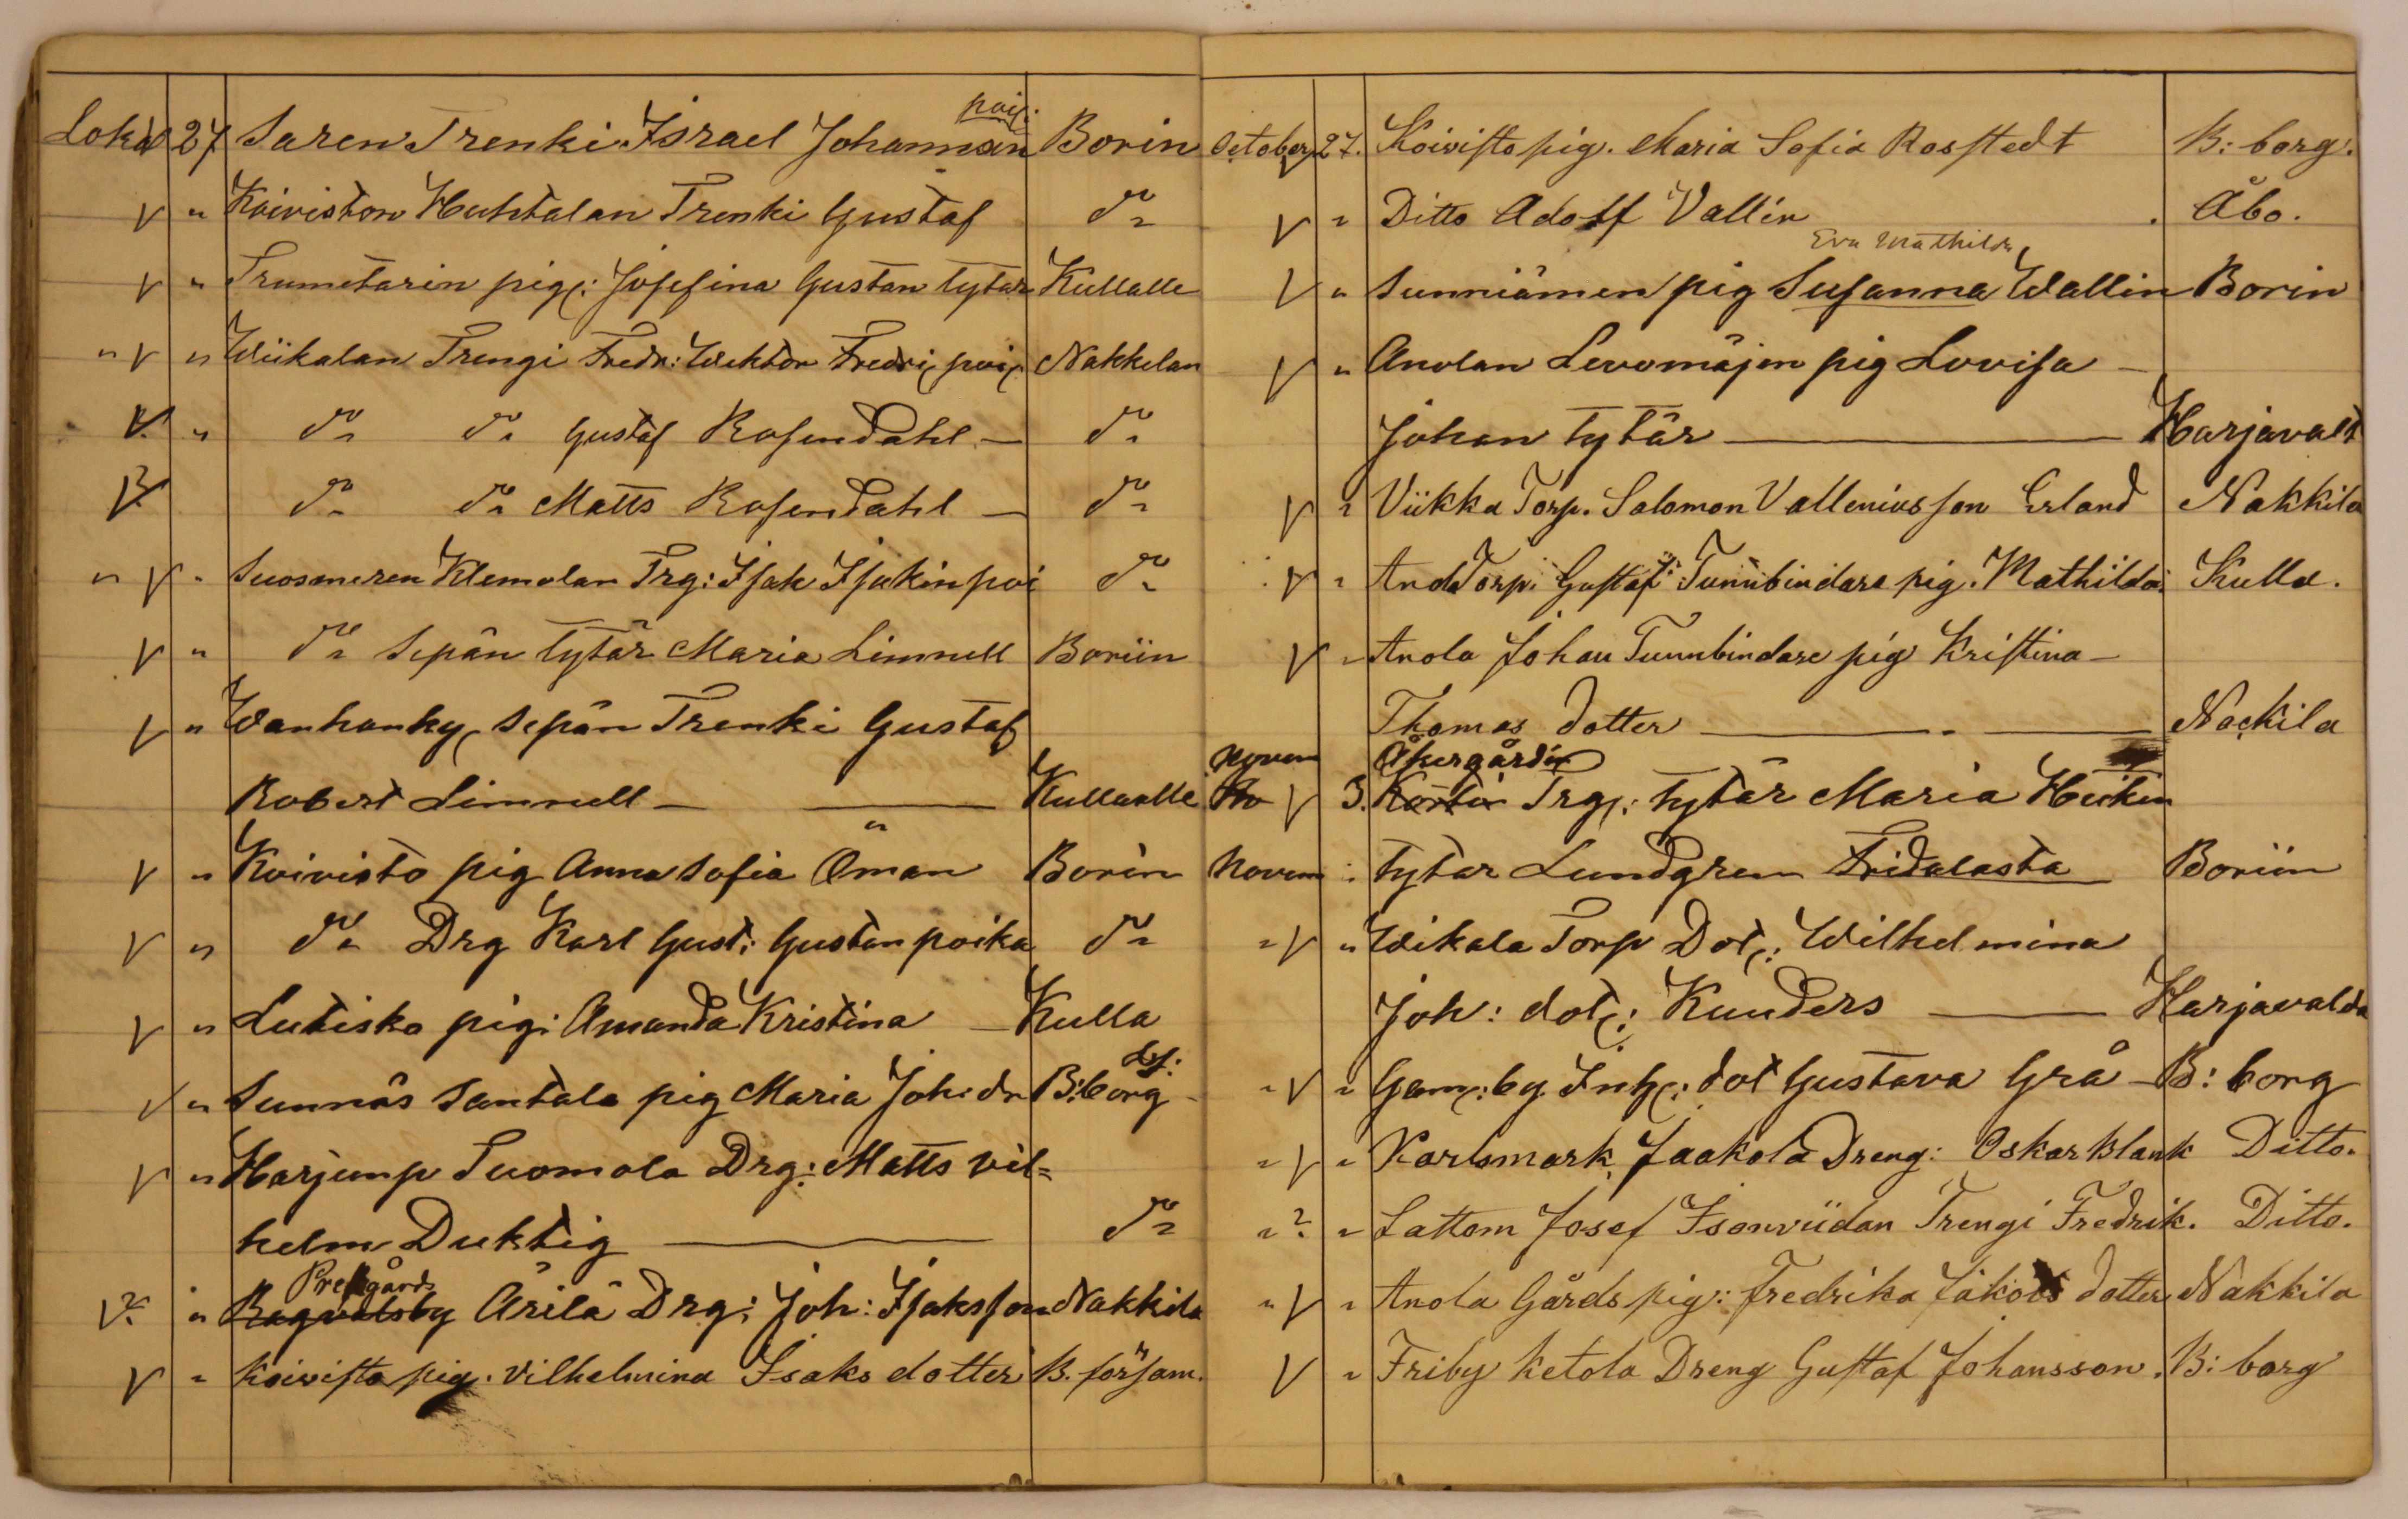 Lokak 27 Saren Trenki Israel Johannan poi: Borin
V " Koiviston Huhtalan Trenki Gustaf do
V " Trumetarin pig: Josefina Gustan tytär Kullalle
" V " Wiikalan Trengi Fredr: Wiktor Fredri poi Nakkilan
V. " do do Gustaf Rosendahl — do
V do do Matts Rosendahl — do
" V " Suosmeren Klemolan Trg: Isak Isakin poi do
V " do Sepän tytär Maria Limnell Boriin
V " Wanhanky, Sepän Trenki Gustaf
Robert Limnell — — Kullaalle
V " Koivisto pig Anna Sofia Öman Borin
V " do Drg Karl Gust: Gustan poika do
V " Lutisko pig: Amanda Kristina — Kulla
V " Sunnäs Santala pig Maria Joh: dr B:borg
V " Harjunp Tuomola Drg: Matts Vil=
helm Duktig — do
Prestgårds
V? " Ragvalsby Ärilä Drg: Joh: Isaksson Nakkila
V " Koivisto pig. Vilhelmina Isaks dotter B. församl.
October 27. Koivisto pig. Maria Sofia Rosstedt B: borg.
V " Ditto Adolf Vallin . Åbo.
Eva Mathilda
V " Sunniämen pig Susanna Wallin Borin
V " Anolan Levomäjen pig Lovisa —
Johan tytär — Harjavalt
V " Viikka Torp. Salomon Vallenius son Erland Nakkila
V " Anola Torp. Gustaf Tunnbindare pig. Mathilda Kulla.
V " Anola Johan Tunnbindare pig Kristina —
Thomas dotter — — Nackila
Novem Åkergårdin
V 3. Kortin Trg: tytär Maria Heiken
Novem : tytar Lundgren Fridalasta Boriin
" V " Wikala Torp Dot: Wilhelmina
Joh: dot: Kunders — Harjavalda
" V " Gam: by. Inh: dot Gustava Grå — B: borg
" V " Karlsmark Jaakola Dreng: Oskar Blank Ditto.
" ? " Lattom Josef Isonviidan Trengi Fredrik. Ditto.
" V " Anola Gårds pig: Fredrika Jakobs dotter Nakkila
V " Friby Ketola Dreng Gustaf Johansson. B: borg